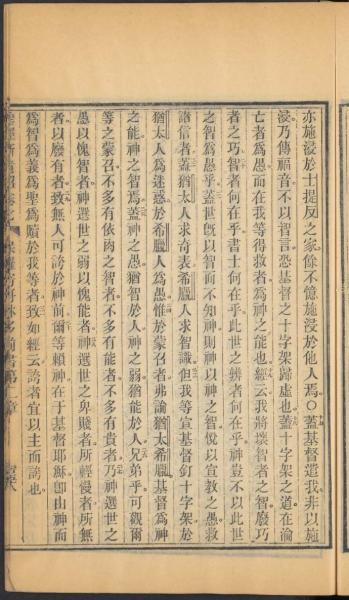 亦施浸於士提反之家餘不憶施浸於他人焉○蓋基督遣我非以施
浸乃傳福音不以智言恐基督之十字架歸虛也蓋十字架之道在淪
亡者爲愚而在我等得救者爲神之能也經云我將壞智者之智廢巧
者之巧智者何在乎書士何在乎此世之辨者何在乎神豈不以此世
之智爲愚乎蓋世旣以智而不知神則神以神之智悅以宣教之愚救
諸信者蓋猶太人求奇表希臘人求智識但我等宣基督釘十字架於
猶太人爲迷惑於希臘人爲愚惟於蒙召者弗論猶太希臘基督爲神
之能神之智焉蓋神之愚智於人神之弱強能於人兄弟乎可觀爾
等之蒙召不多有依肉之智者不多有能者不多有貴者乃神選世之
愚以愧智者神選世之弱以愧能者神選世之卑賤者所輕慢者所無
者以廢有者致無人可誇於神前爾等賴神在于基督耶穌卽由神而
爲智爲義爲聖爲贖於我等者致如經云誇者宜以主而誇也